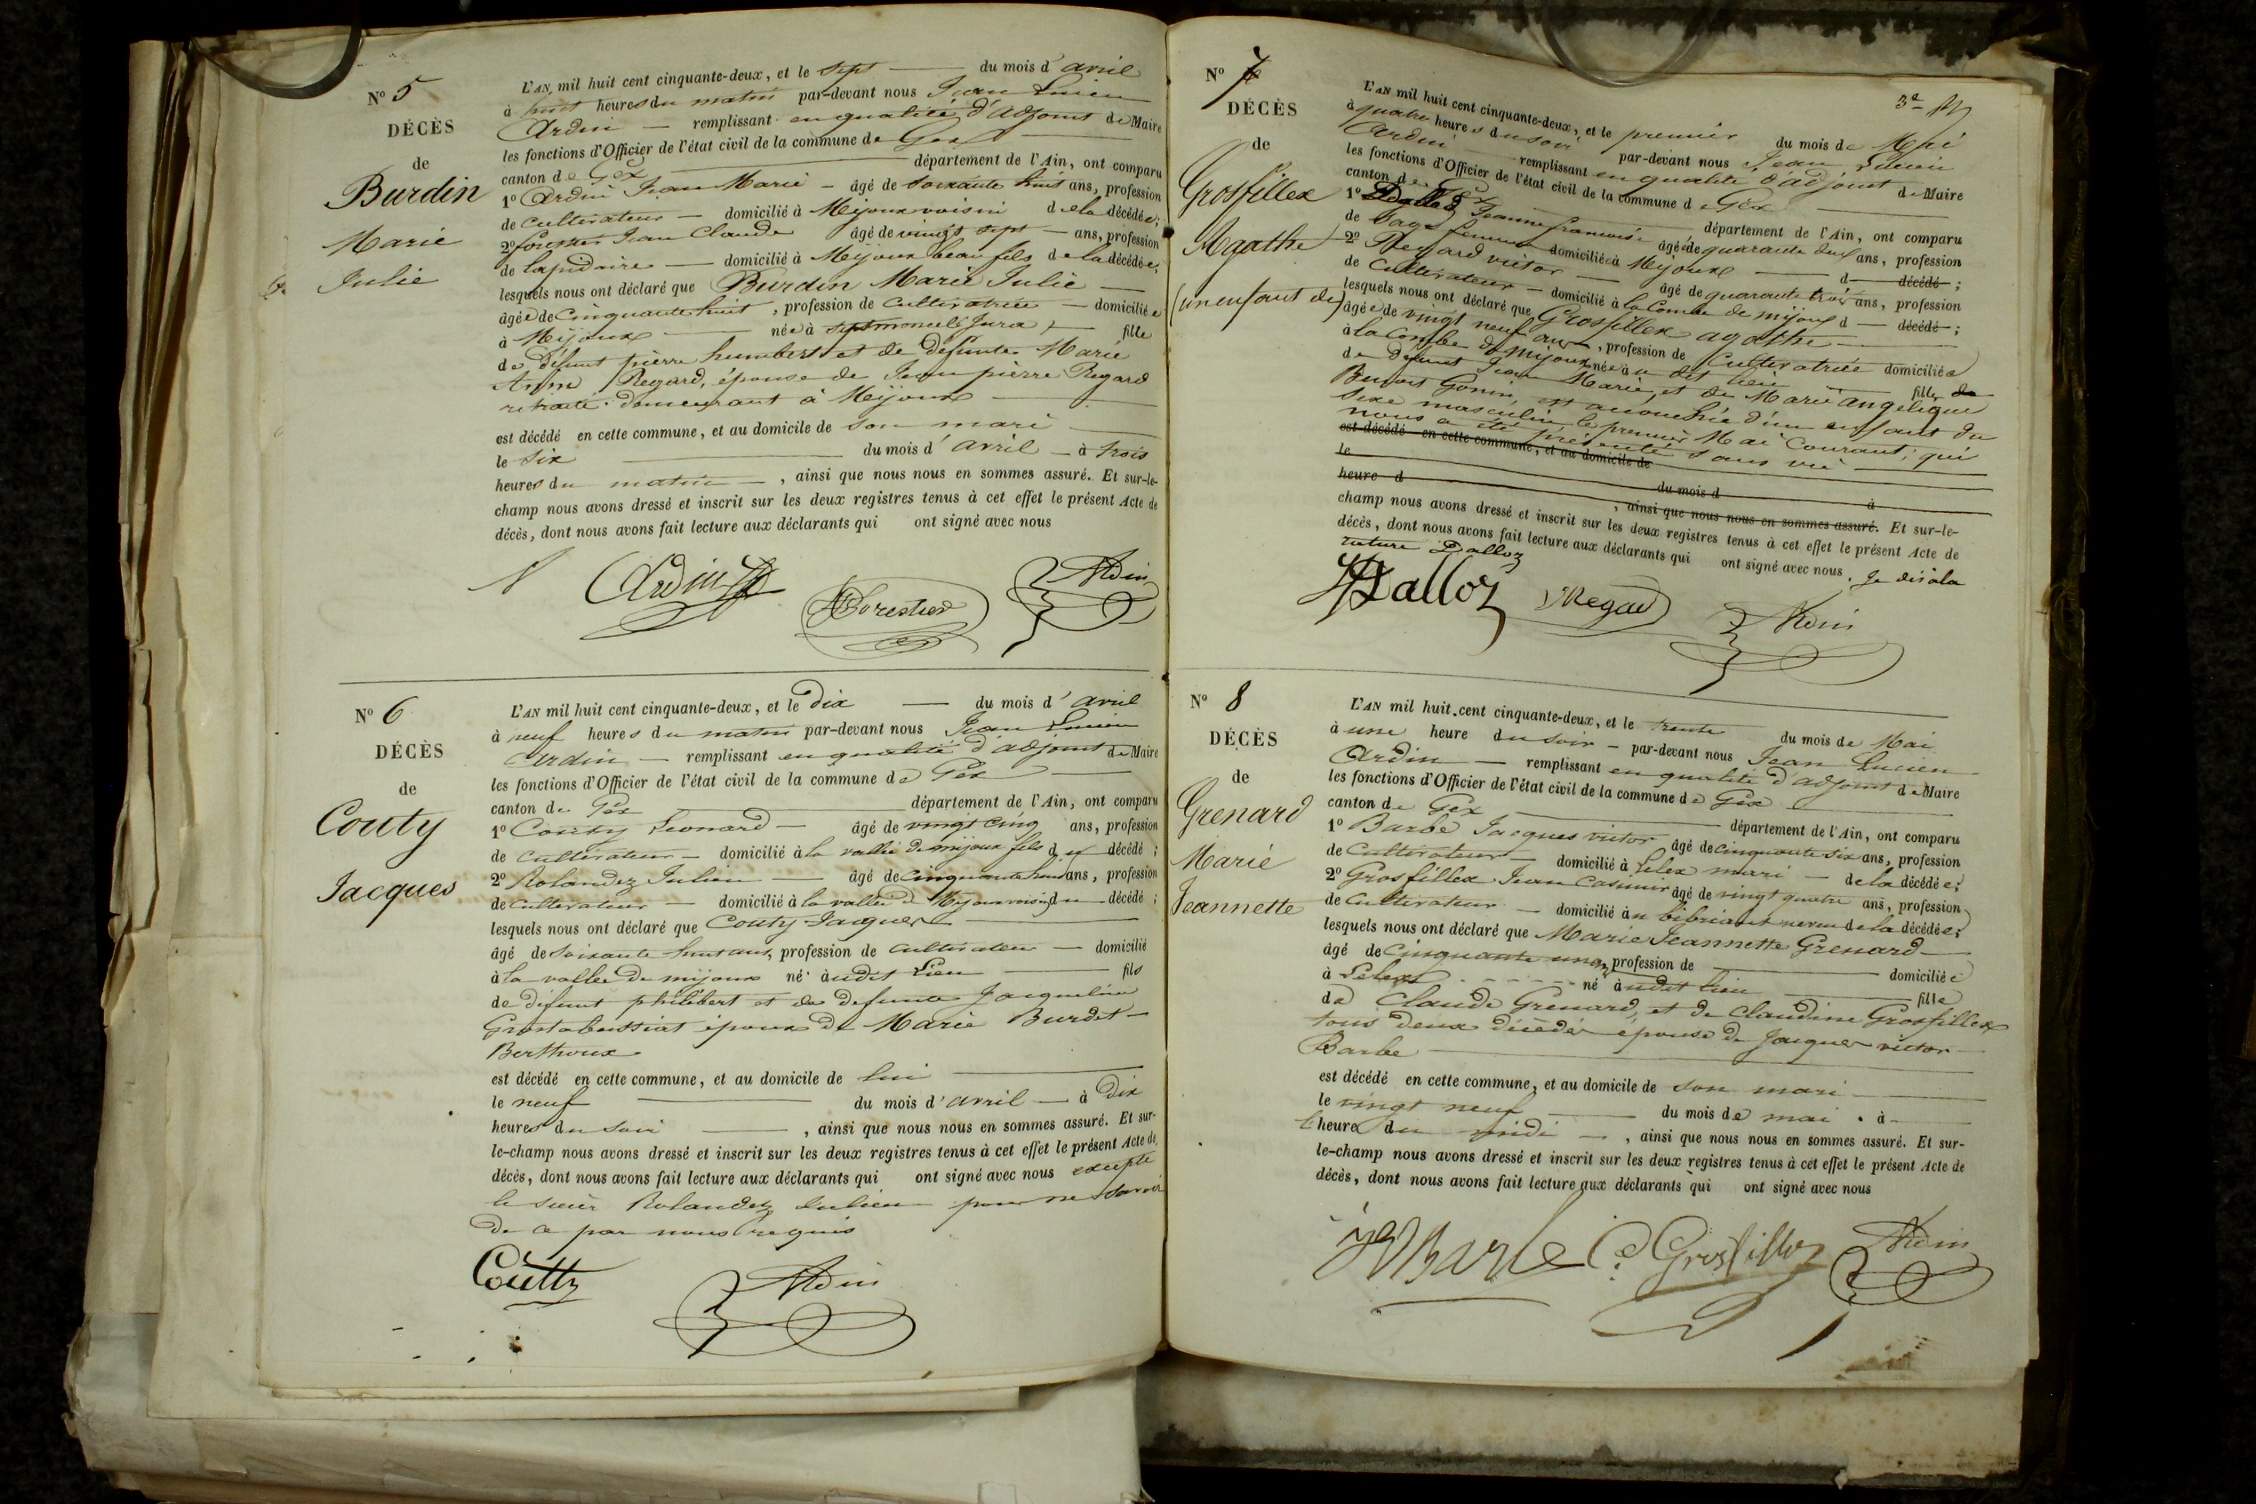 N° 5
DÉCÈS
de
Burdin
Marie
Julie
L'AN mil huit cent cinquante-deux, et le sept du mois d'avril
à huit heures du matin par-devant nous Jean Lucien
Ardin remplissant en qualité d'adjoint de Maire
les fonctions d'Officier de l'état civil de la commune de Gex
canton de Gex département de l'Ain, ont comparu
1° Ardin Jean Marie âgé de soixante huit ans, profession
de cultivateur domicilié à Mijoux voisin de la décédée;
2° forestier Jean Claude âgé de vingt sept ans, profession
de lapidaire domicilié à Mijoux beau fils de la décédée;
lesquels nous ont déclaré que Burdin Marie Julie
âgée de cinquante huit, profession de cultivatrice domiciliée
à Mijoux née à septmoncel (Jura) fille
de défunt pierre humbert et de défunte Marie
Anne Regard, épouse de Jean pierre Regard
retraité demeurant à Mijoux
est décédé en cette commune, et au domicile de son mari
le six du mois d'avril à trois
heures du matin, ainsi que nous nous en sommes assuré. Et sur-le-
champ nous avons dressé et inscrit sur les deux registres tenus à cet effet le présent Acte de
décès, dont nous avons fait lecture aux déclarants qui ont signé avec nous
Ardin Forestier Ardin
N° 6
DÉCÈS
de
Couty
Jacques
L'AN mil huit cent cinquante-deux, et le dix du mois d'avril
à neuf heures du matin par-devant nous Jean Lucien
Ardin remplissant en qualité d'adjoint de Maire
les fonctions d'Officier de l'état civil de la commune de Gex
canton de Gex département de l'Ain, ont comparu
1° Couty Leonard âgé de vingt cinq ans, profession
de cultivateur domicilié à la vallée de mijoux fils du décédé;
2° Rolandez Julien âgé de cinquante ans, profession
de cultivateur domicilié à la vallée de Mijoux voisin du décédé;
lesquels nous ont déclaré que Couty Jacques
âgé de soixante huit ans, profession de cultivateur domicilié
à la vallée de mijoux né audit Lieu fils
de défunt philibert et de defunte Jacqueline
Grostabussiat époux de Marie Burdet
Berthoux
est décédé en cette commune, et au domicile de lui
le neuf du mois d'avril à Dix
heures du soir, ainsi que nous nous en sommes assuré. Et sur-
le-champ nous avons dressé et inscrit sur les deux registres tenus à cet effet le présent Acte de
décès, dont nous avons fait lecture aux déclarants qui ont signé avec nous excepté
le sieur Rolandez Julien pour ne savoir
de ce par nous requis
Coutty Ardin
N° 7
DÉCÈS
de
Grosfillex
Agathe
(un enfant de)
L'AN mil huit cent cinquante-deux, et le premier du mois de Mai
à quatre heures du soir par-devant nous Jean Lucien
Ardin remplissant en qualité d'adjoint de Maire
les fonctions d'Officier de l'état civil de la commune de Gex
canton de Gex département de l'Ain, ont comparu
1° Dalloz Jeanne francoise âgée de quarante deux ans, profession
de Sage femme domiciliée à Mijoux d décédé;
2° Regard victor âgé de quarante trois ans, profession
de cultivateur domicilié à la Combe de mijoux d décédé;
lesquels nous ont déclaré que Grosfillex agathe
âgée de vingt neuf ans, profession de cultivatrice domiciliée
à la Combe de Mijoux née au dit lieu fille de
de défunt Jean Marie, et de Marie angélique
Benoit Gonin, est accouchée d'un enfant du
sexe masculin le premier Mai courant; qui
nous a été présenté sans vie
est décédé en cette commune, et au domicile de
le du mois d à
heure d, ainsi que nous nous en sommes assuré. Et sur-le-
champ nous avons dressé et inscrit sur les deux registres tenus à cet effet le présent Acte de
décès, dont nous avons fait lecture aux déclarants qui ont signé avec nous. Je dis à la
rature Dalloz
Dalloz Regard Ardin
N° 8
DÉCÈS
de
Grenard
Marie
Jeannette
L'AN mil huit cent cinquante-deux, et le trente du mois de Mai
à une heure du soir par-devant nous Jean Lucien
Ardin remplissant en qualité d'adjoint de Maire
les fonctions d'Officier de l'état civil de la commune de Gex
canton de Gex département de l'Ain, ont comparu
1° Barbe Jacques victor âgé de cinquante six ans, profession
de cultivateur domicilié à Lelex mari de la décédée;
2° Grosfillex Jean Casimir âgé de vingt quatre ans, profession
de cultivateur domicilié à neveu de la décédée;
lesquels nous ont déclaré que Marie Jeannette Grenard
âgé de cinquante un ans, profession de domiciliée
à Lelex né audit lieu fille
de Claude Grenard, et de Claudine Grosfillex
tous deux décédés épouse de Jacques victor
Barbe
est décédé en cette commune, et au domicile de son mari
le vingt neuf du mois de mai à
l'heure du midi, ainsi que nous nous en sommes assuré. Et sur-
le-champ nous avons dressé et inscrit sur les deux registres tenus à cet effet le présent Acte de
décès, dont nous avons fait lecture aux déclarants qui ont signé avec nous
JV Barbe C. Grosfillex Ardin